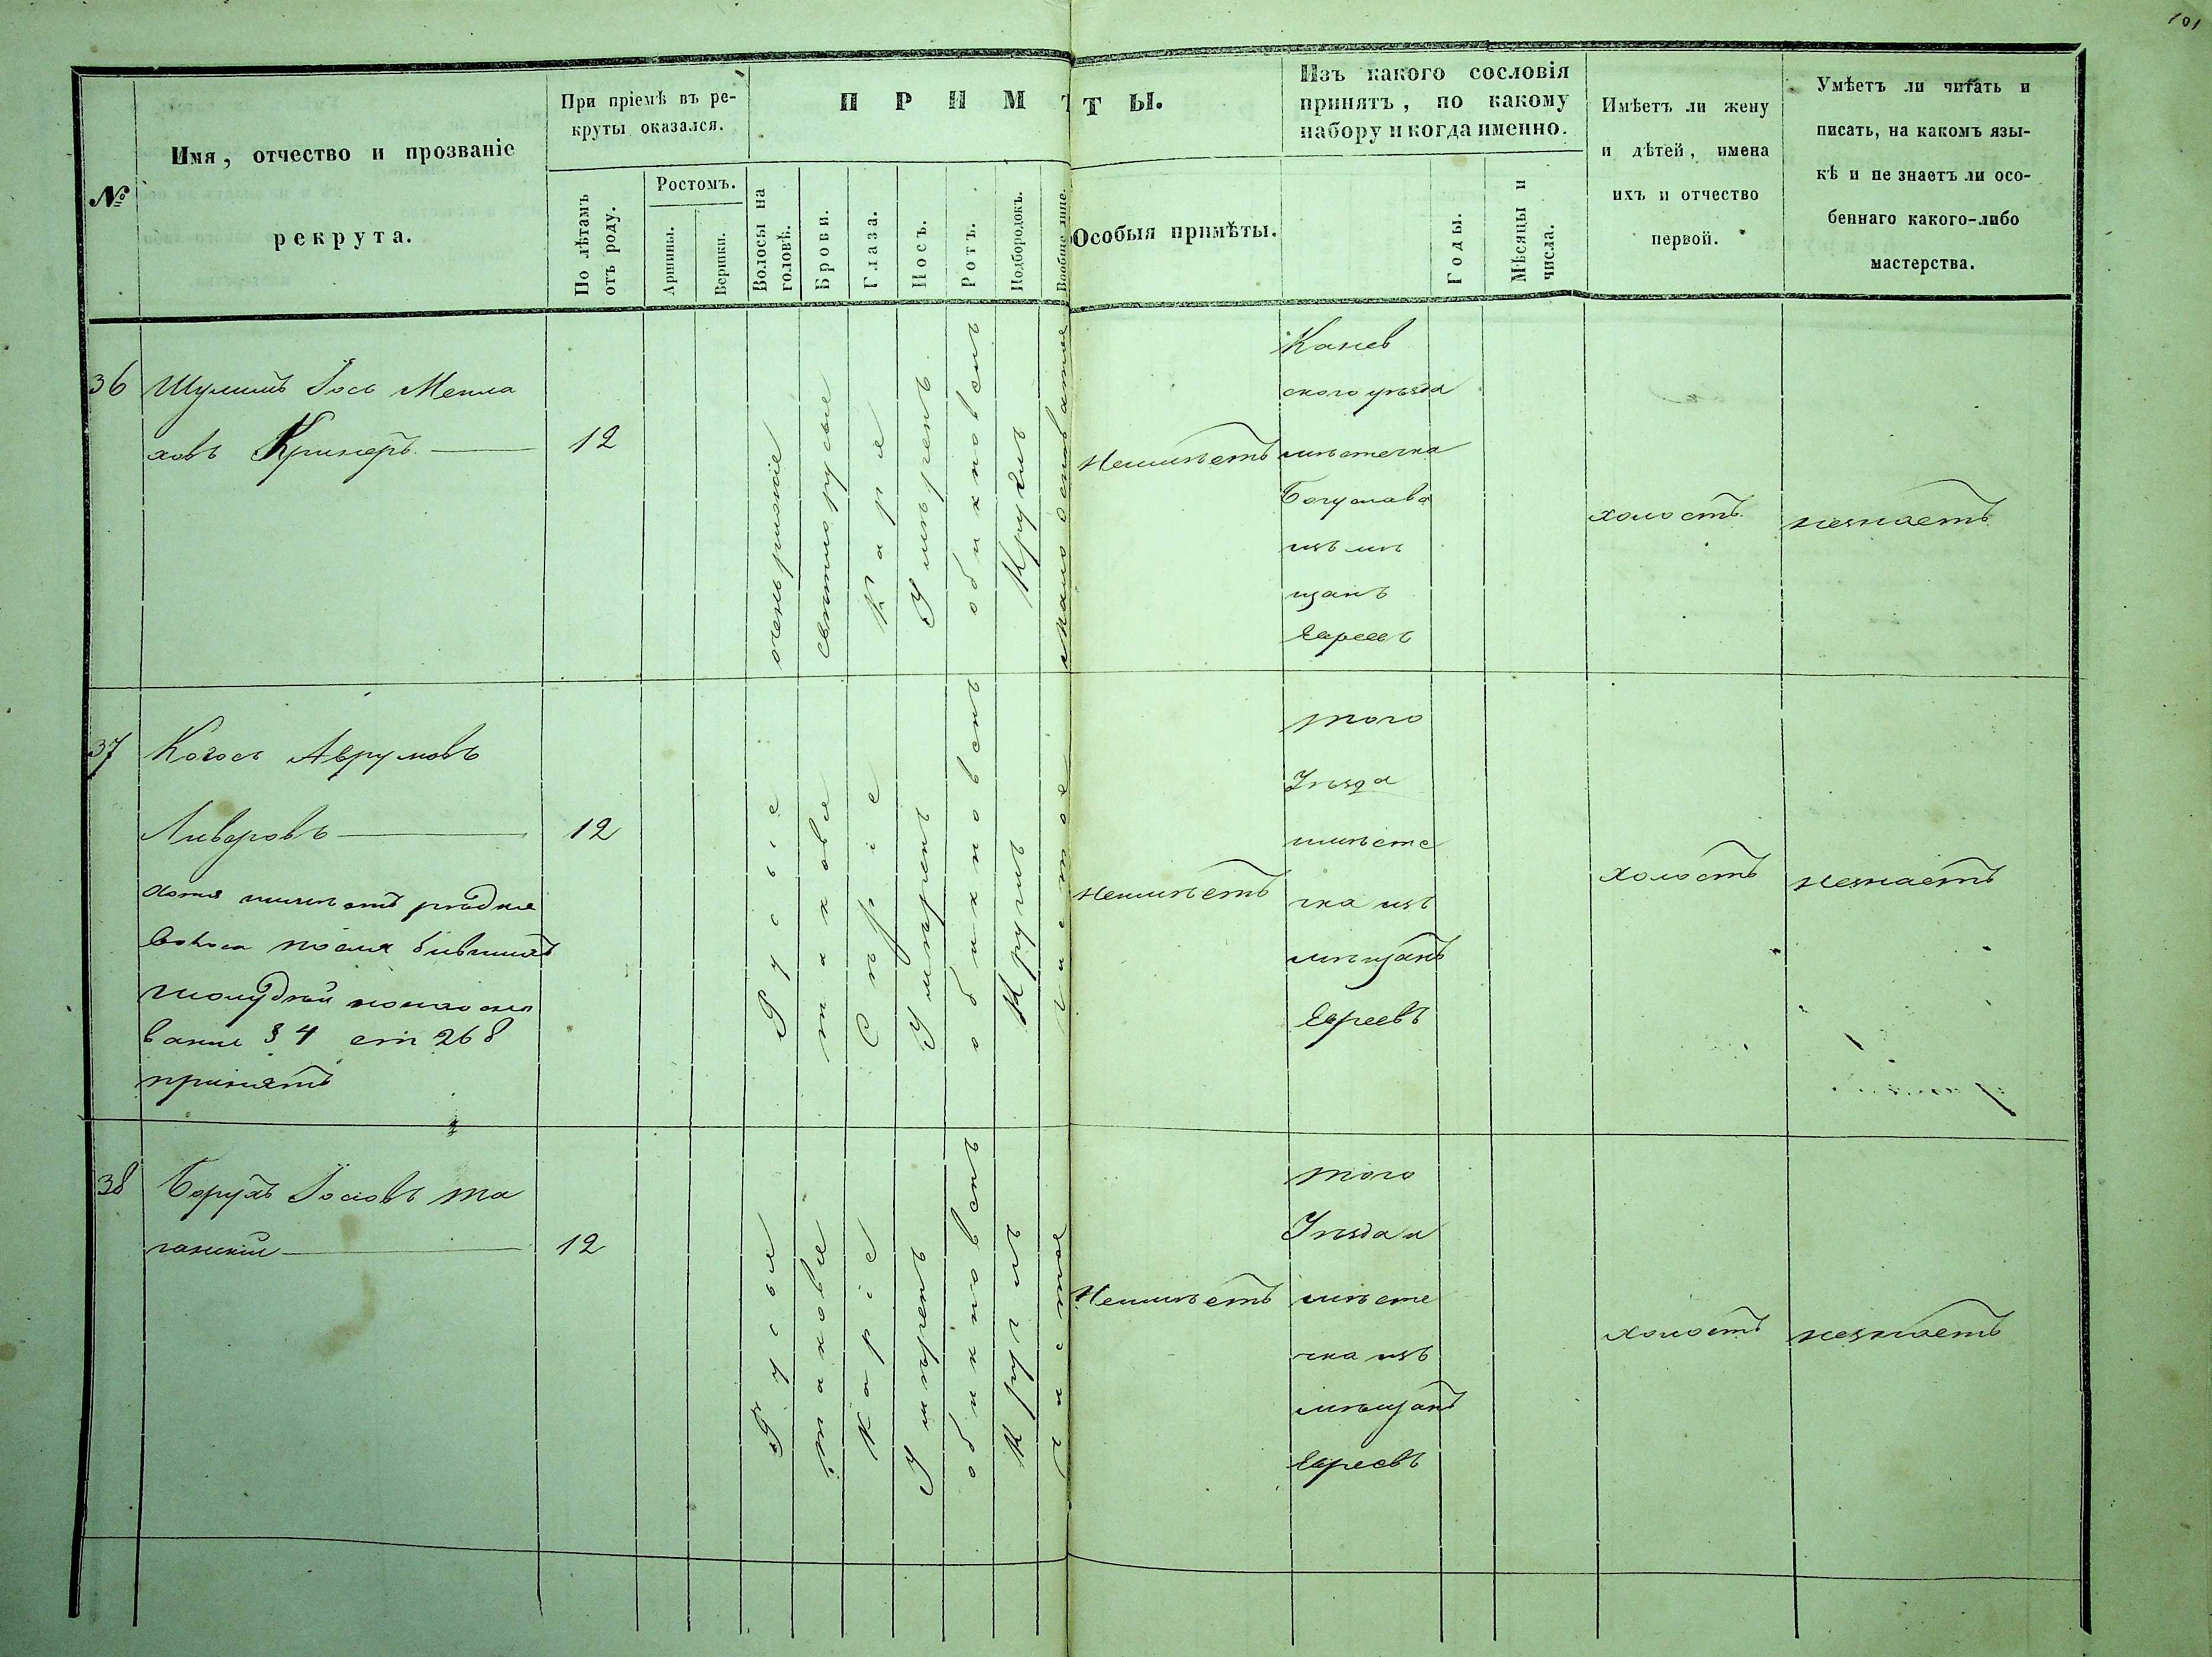 101
№
Имя, отчество и прозваніе
рекрута.
При пріемѣ въ ре-
круты оказался.
По лѣтамъ
отъ роду.
Ростомъ.
Аршины.
Вершки.
ПРИМѢТЫ.
Волосы на
головѣ.
Брови.
Глаза.
Носъ.
Ротъ.
Подбородокъ.
Вообще лице.
Особыя примѣты.
Изъ какого сословія
принятъ, по какому
набору и когда именно.
Годы.
Мѣсяцы и
числа.
Имѣетъ ли жену
и дѣтей, имена
ихъ и отчество
первой.
Умѣетъ ли читать и
писать, на какомъ язы-
кѣ и не знаетъ ли осо-
беннаго какого-либо
мастерства.
36
Шулимъ Іось Менла
ховъ Кринеръ
12
очень рижіе
светлорусые
Карія
Умѣренъ
обикновенъ
Круглъ
мало осповатое
Неимѣетъ
Канев
ского уѣзда
мѣстечка
Богуслава
изъ мѣ
щанъ
Евреевъ
холостъ
незнаетъ
37
Когосъ Аврумовъ
Ливеровъ
хотя имѣетъ рѣдкіе
волоса после бывшихъ
§ 4 ст 268
принятъ
12
Русыє
таковые
Сѣріе
Умѣренъ
обикновенъ
Круглъ
чистое
Неимѣетъ
того
Уѣзда
имѣсте
чка изъ
мѣщанъ
Евреевъ
холостъ
незнаетъ
38
Борухъ Іосіовъ та
ганскій
12
Русыя
таковые
Каріе
Умѣренъ
обикновенъ
Круглъ
чистое
Неимѣетъ
того
Уѣзда и
мѣсте
чка изъ
мѣщанъ
Евреевъ
холостъ
незнаетъ